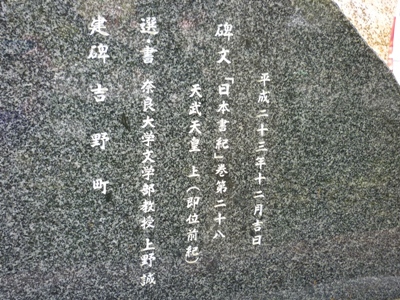 平成二十三年十二月吉日
碑文「日本書紀」巻第二十八
天武天皇 上(即位前紀)
選・書 奈良大学文学部教授 上野誠
建碑 吉野町